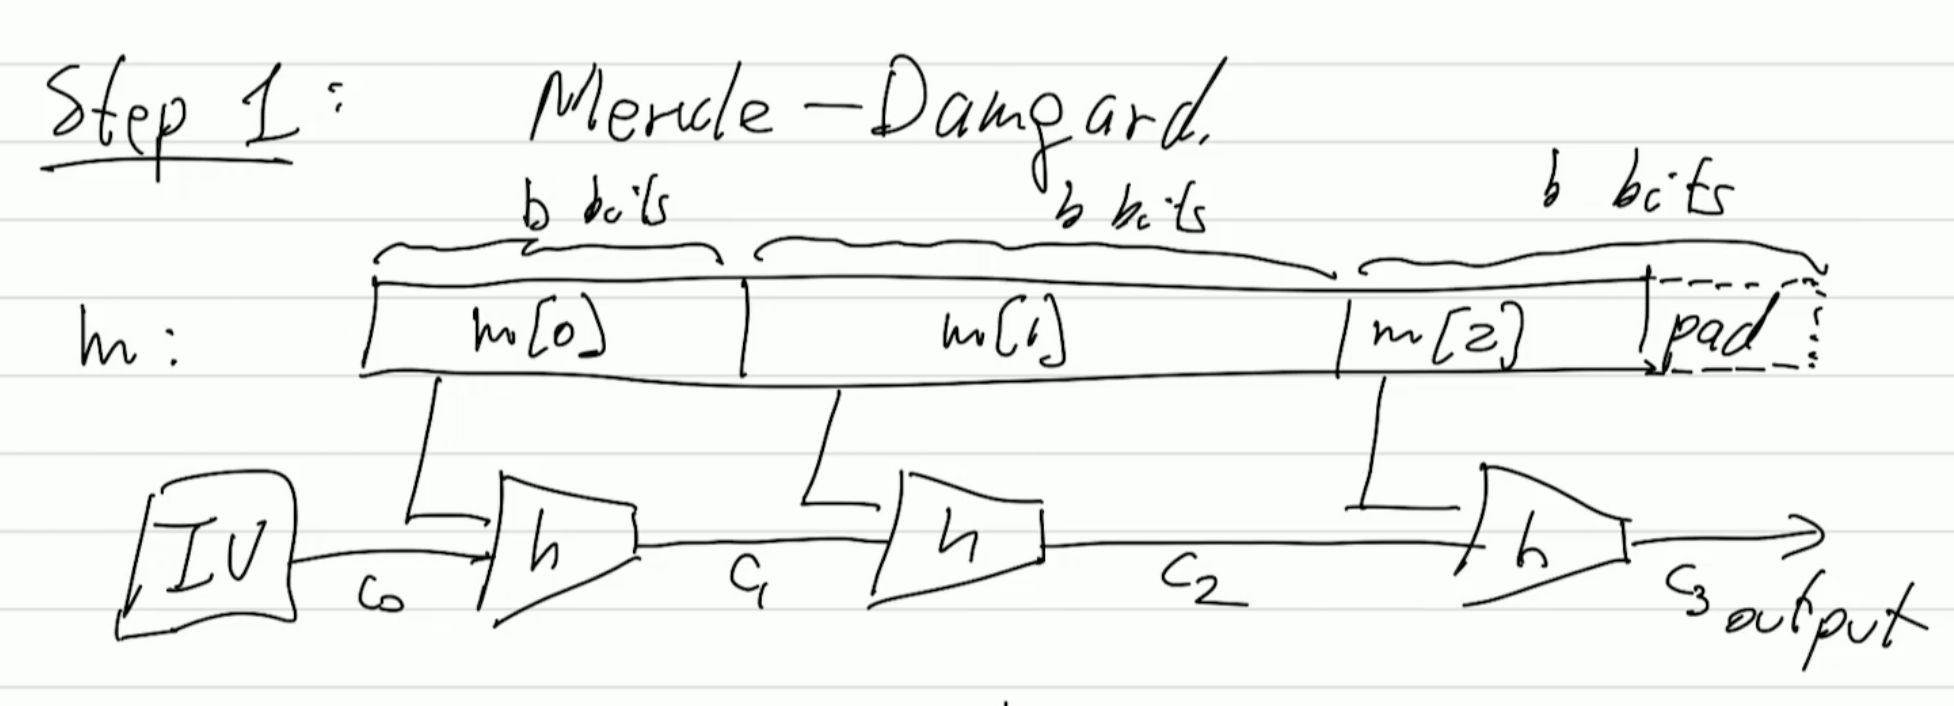 Step 1: Mercle-Damgard.
b bits b bits b bits
m: m[0] m[1] m[2] pad
IV h h h
c0 c1 c2 c3 output